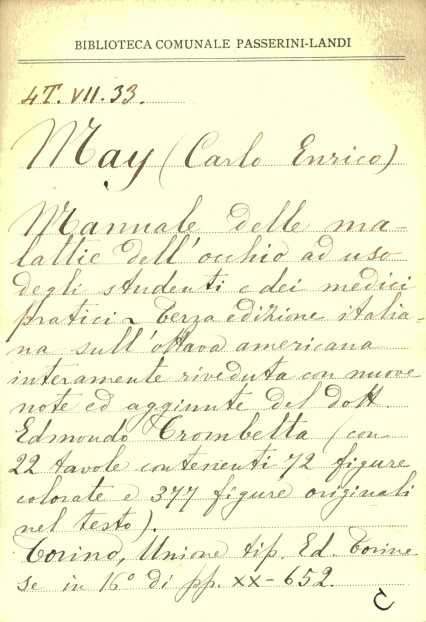 BIBLIOTECA COMUNALE PASSERINI-LANDI
4T. VII. 33.
May (Carlo Enrico)
Manuale delle ma-
lattie dell'occhio ad uso
degli studenti e dei medici
pratici - Terza edizione italia-
na sull'ottava americana
interamente riveduta con nuove
note ed aggiunte del dott.
Edmondo Trombetta (con
22 tavole contenenti 72 figure
colorate e 377 figure originali
nel testo).
Torino, Unione tip. Ed. Torine
se in 16° di pp. XX-652.